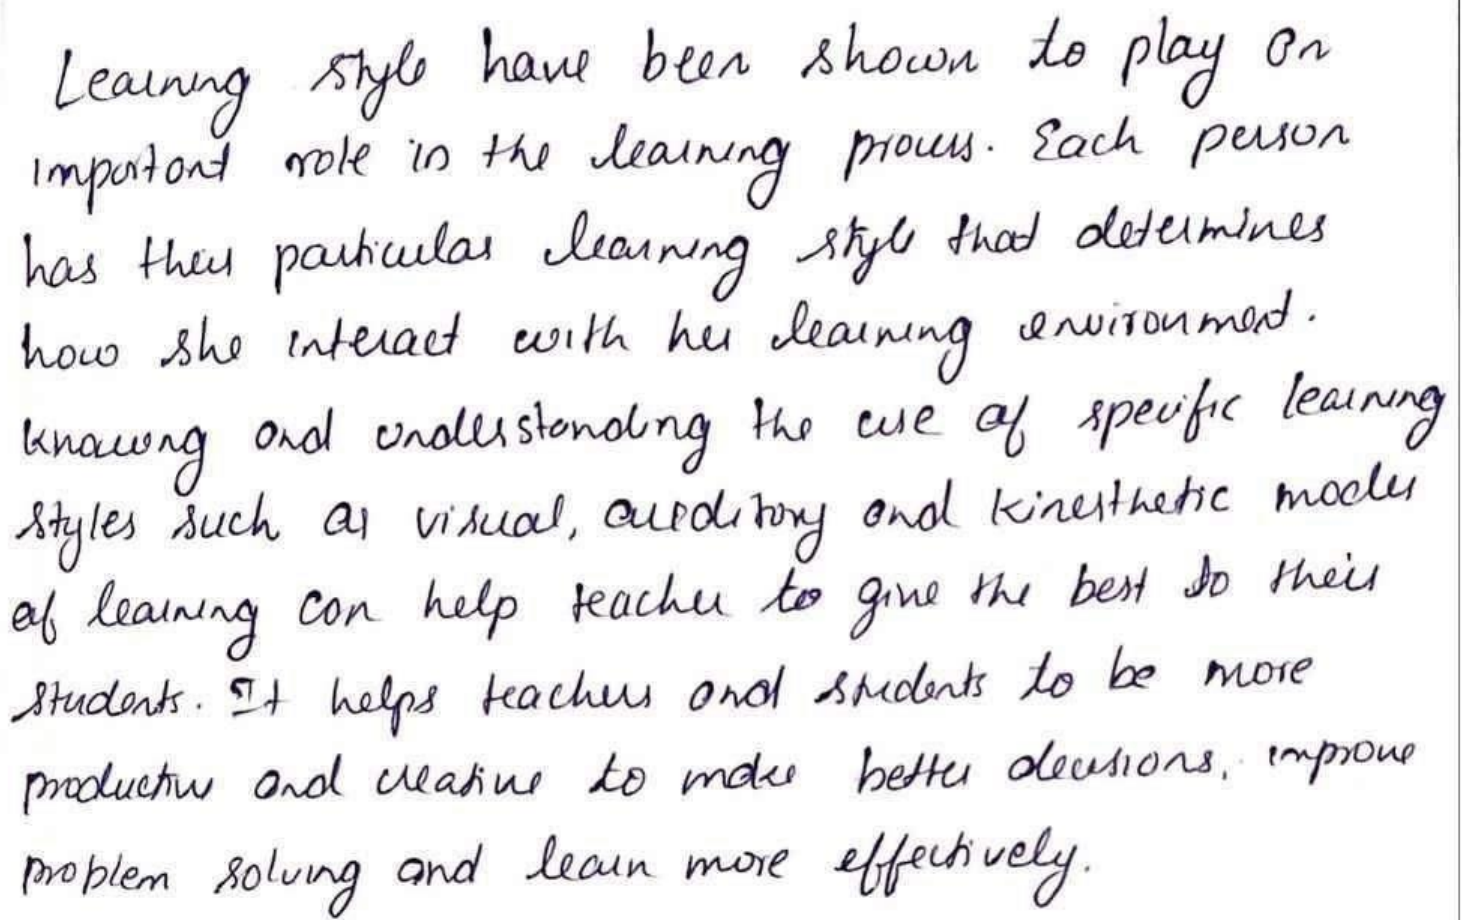 Learning style have been shown to play an
important role in the learning process. Each person
has their particular learning style that determines
how she interact with her learning environment.
Knowing and understanding the use of specific learning
styles such as visual, auditory and kinesthetic modes
of learning can help teacher to give the best to their
students. It helps teachers and students to be more
productive and creative to make better decisions, improve
problem solving and learn more effectively.